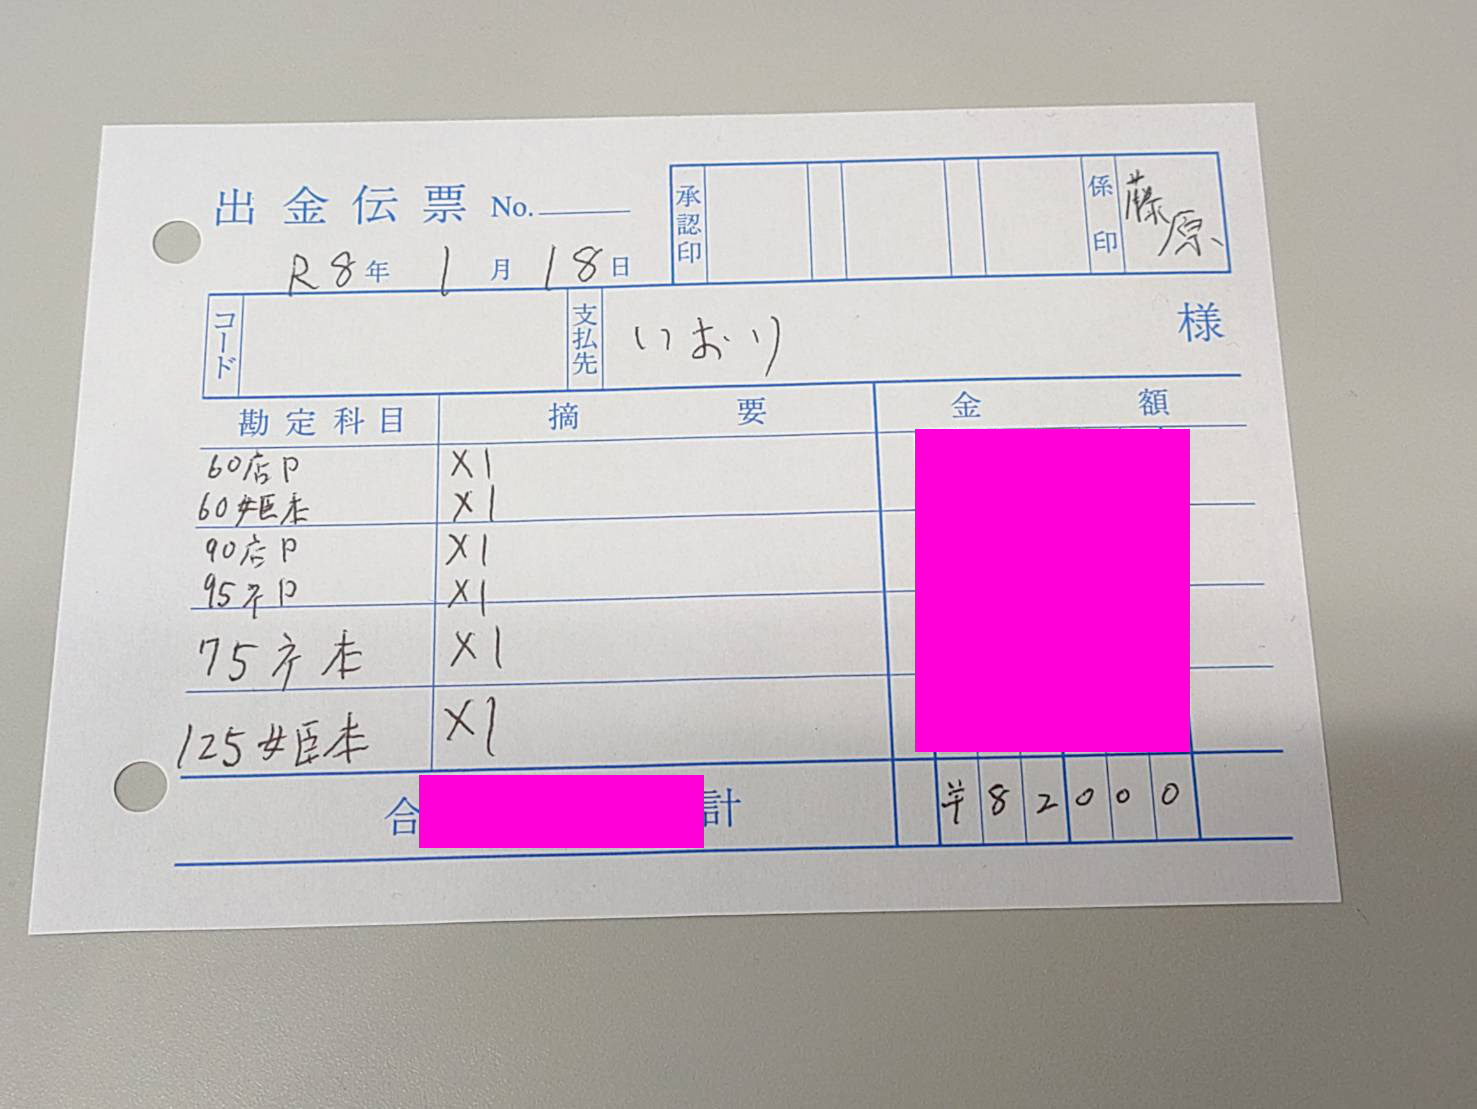 出金伝票 No.
承認印
係印 藤原
R8年 1月 18日
コード
支払先 いおり 様
勘定科目 摘要 金額
60店P ×1
60姫本 ×1
90店P ×1
95ネP ×1
75ネ本 ×1
125姫本 ×1
合 計 ¥82000